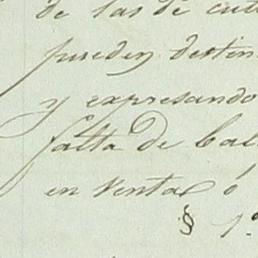 de las de cul
pueden destin
y expresando
falta de bal
en venta ó
§ 1.º